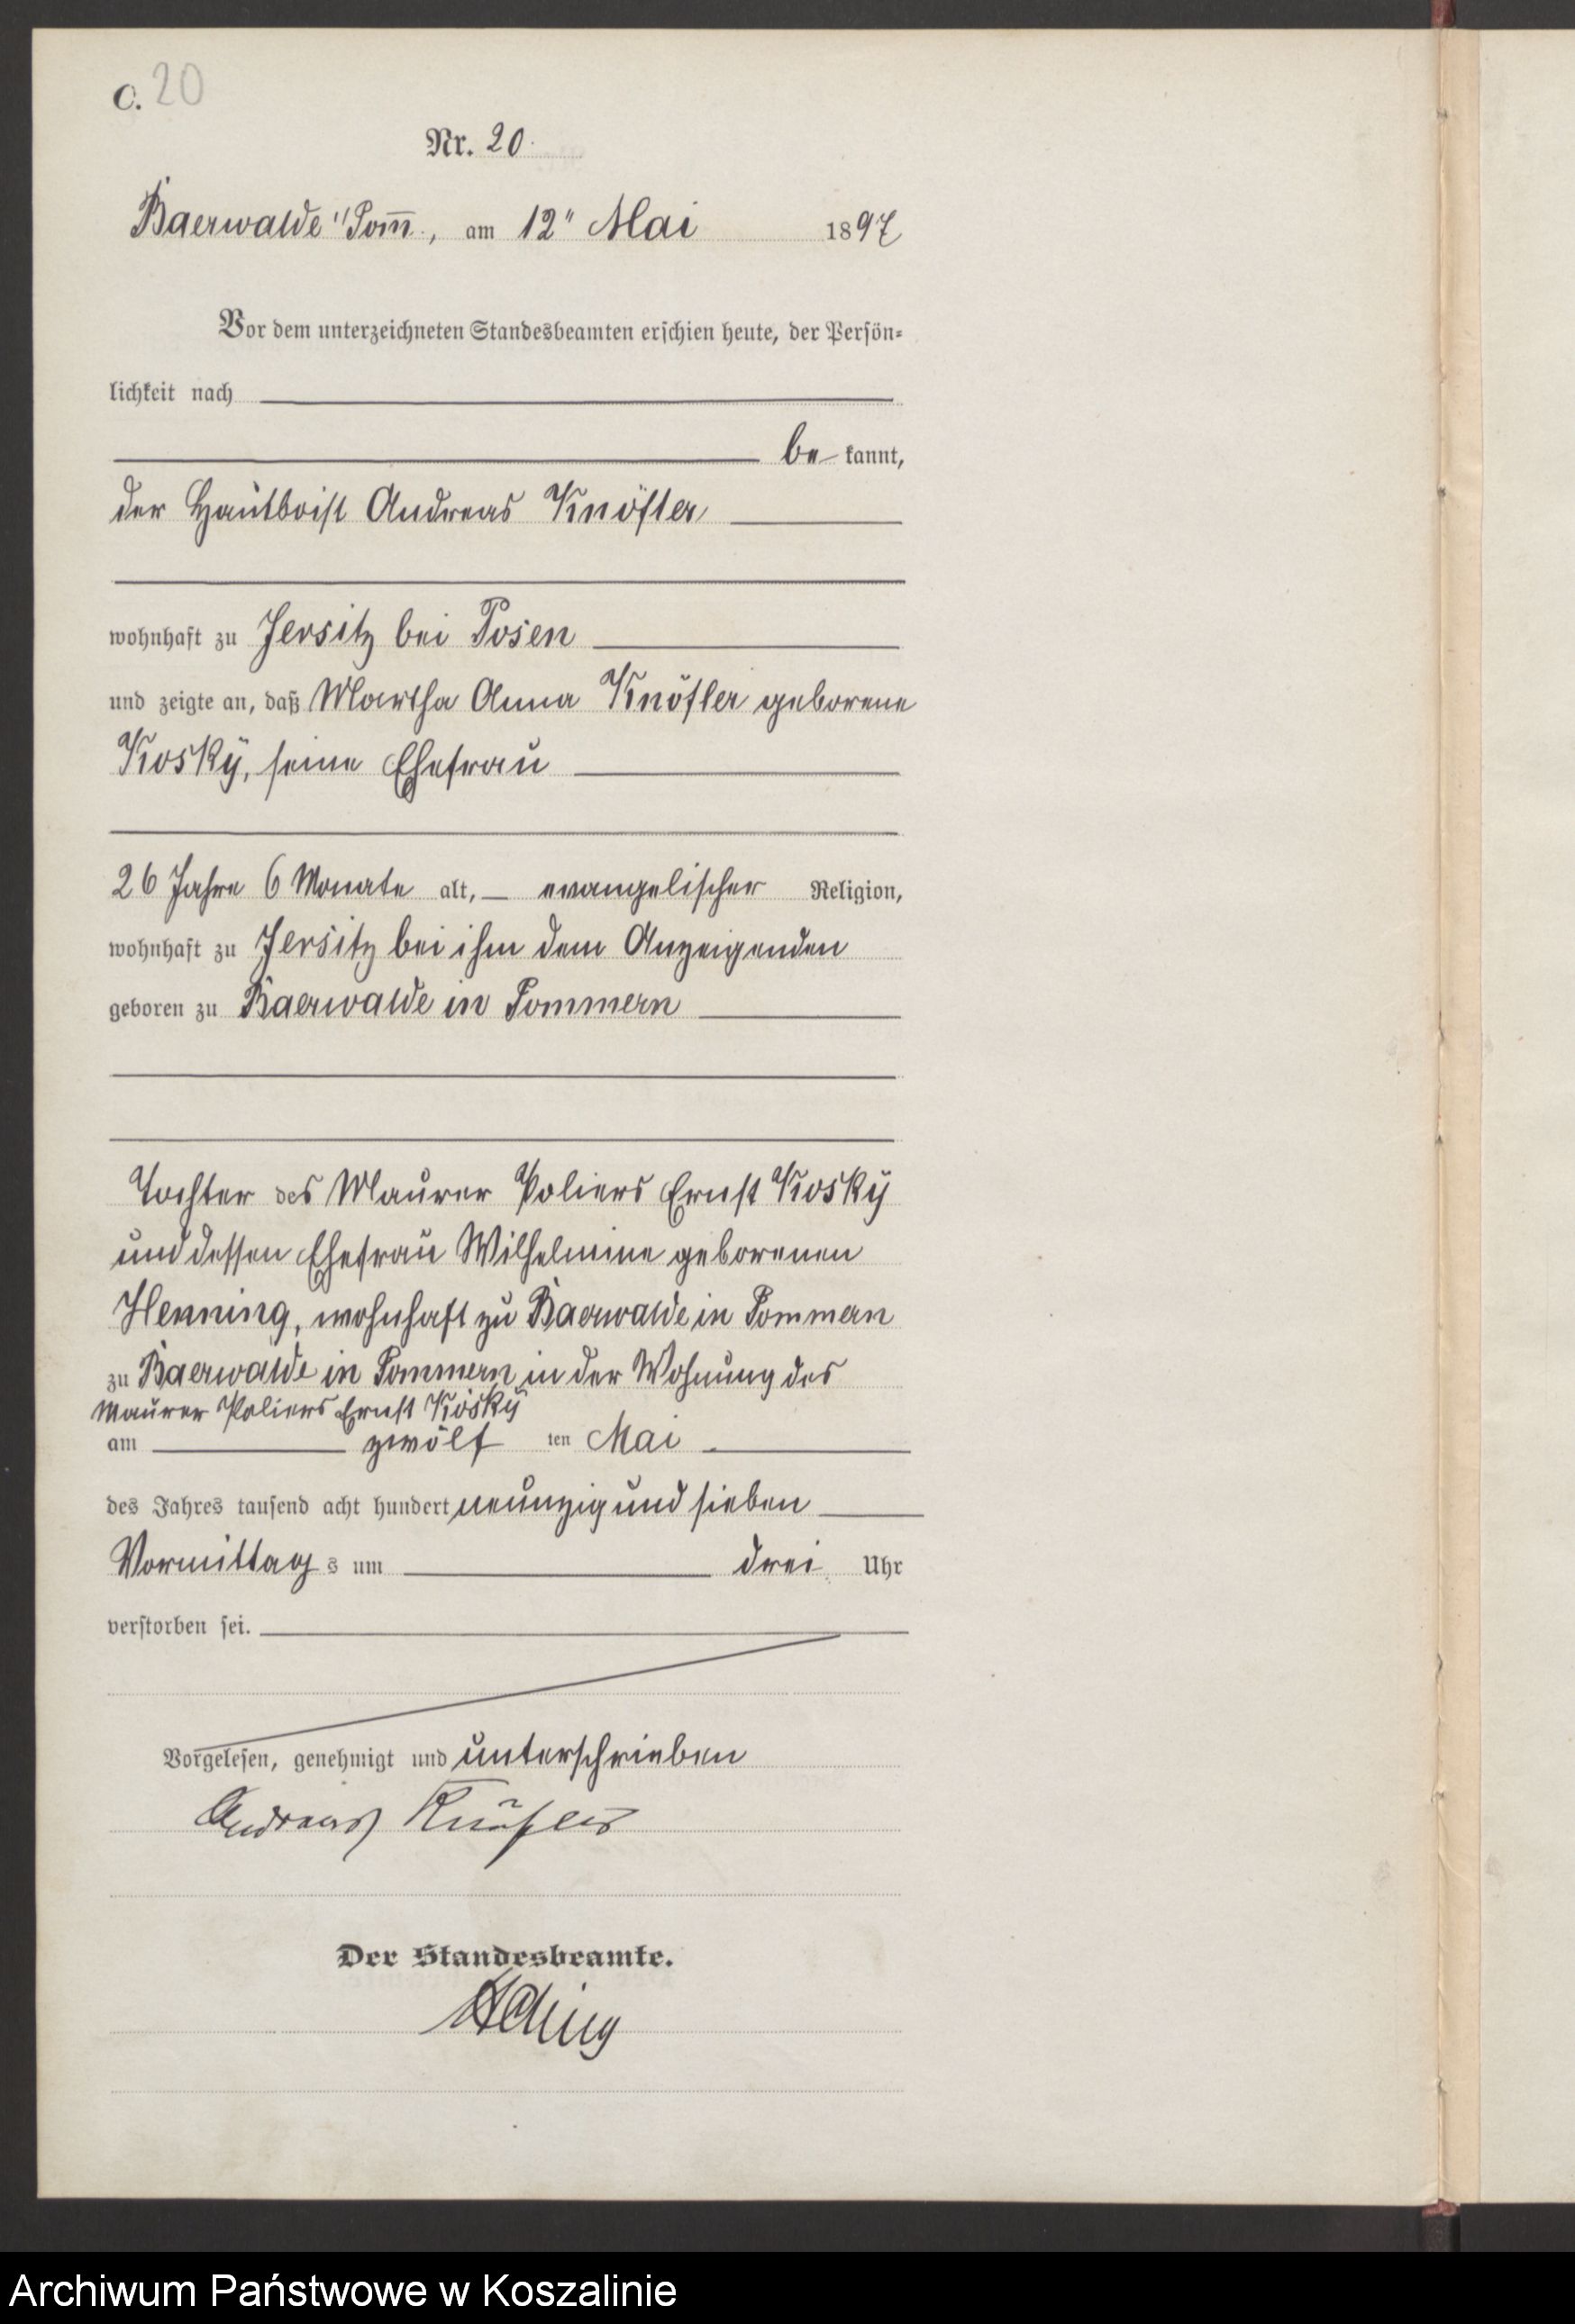 C. 20
Nr. 20.
Baerwalde i/Pom̅., am 12" Mai 1897
Vor dem unterzeichneten Standesbeamten erschien heute, der Persön-
lichkeit nach
be kannt,
der Hautboist Andreas Knöfler
wohnhaft zu Jersitz bei Posen
und zeigte an, daß Martha Anna Knöfler geborene
Kosky, seine Ehefrau
26 Jahre 6 Monate alt, evangelischer Religion,
wohnhaft zu Jersitz bei ihm dem Anzeigenden
geboren zu Baerwalde in Pommern
Tochter des Maurer Poliers Ernst Kosky
und dessen Ehefrau Wilhelmine geborenen
Henning, wohnhaft zu Baerwalde in Pommern
zu Baerwalde in Pommern in der Wohnung des
Maurer Poliers Ernst Kosky
am zwölf ten Mai
des Jahres tausend acht hundert neunzig und sieben
Vormittag s um drei Uhr
verstorben sei.
Vorgelesen, genehmigt und unterschrieben
Andreas Knöfler
Der Standesbeamte.
Archiwum Państwowe w Koszalinie